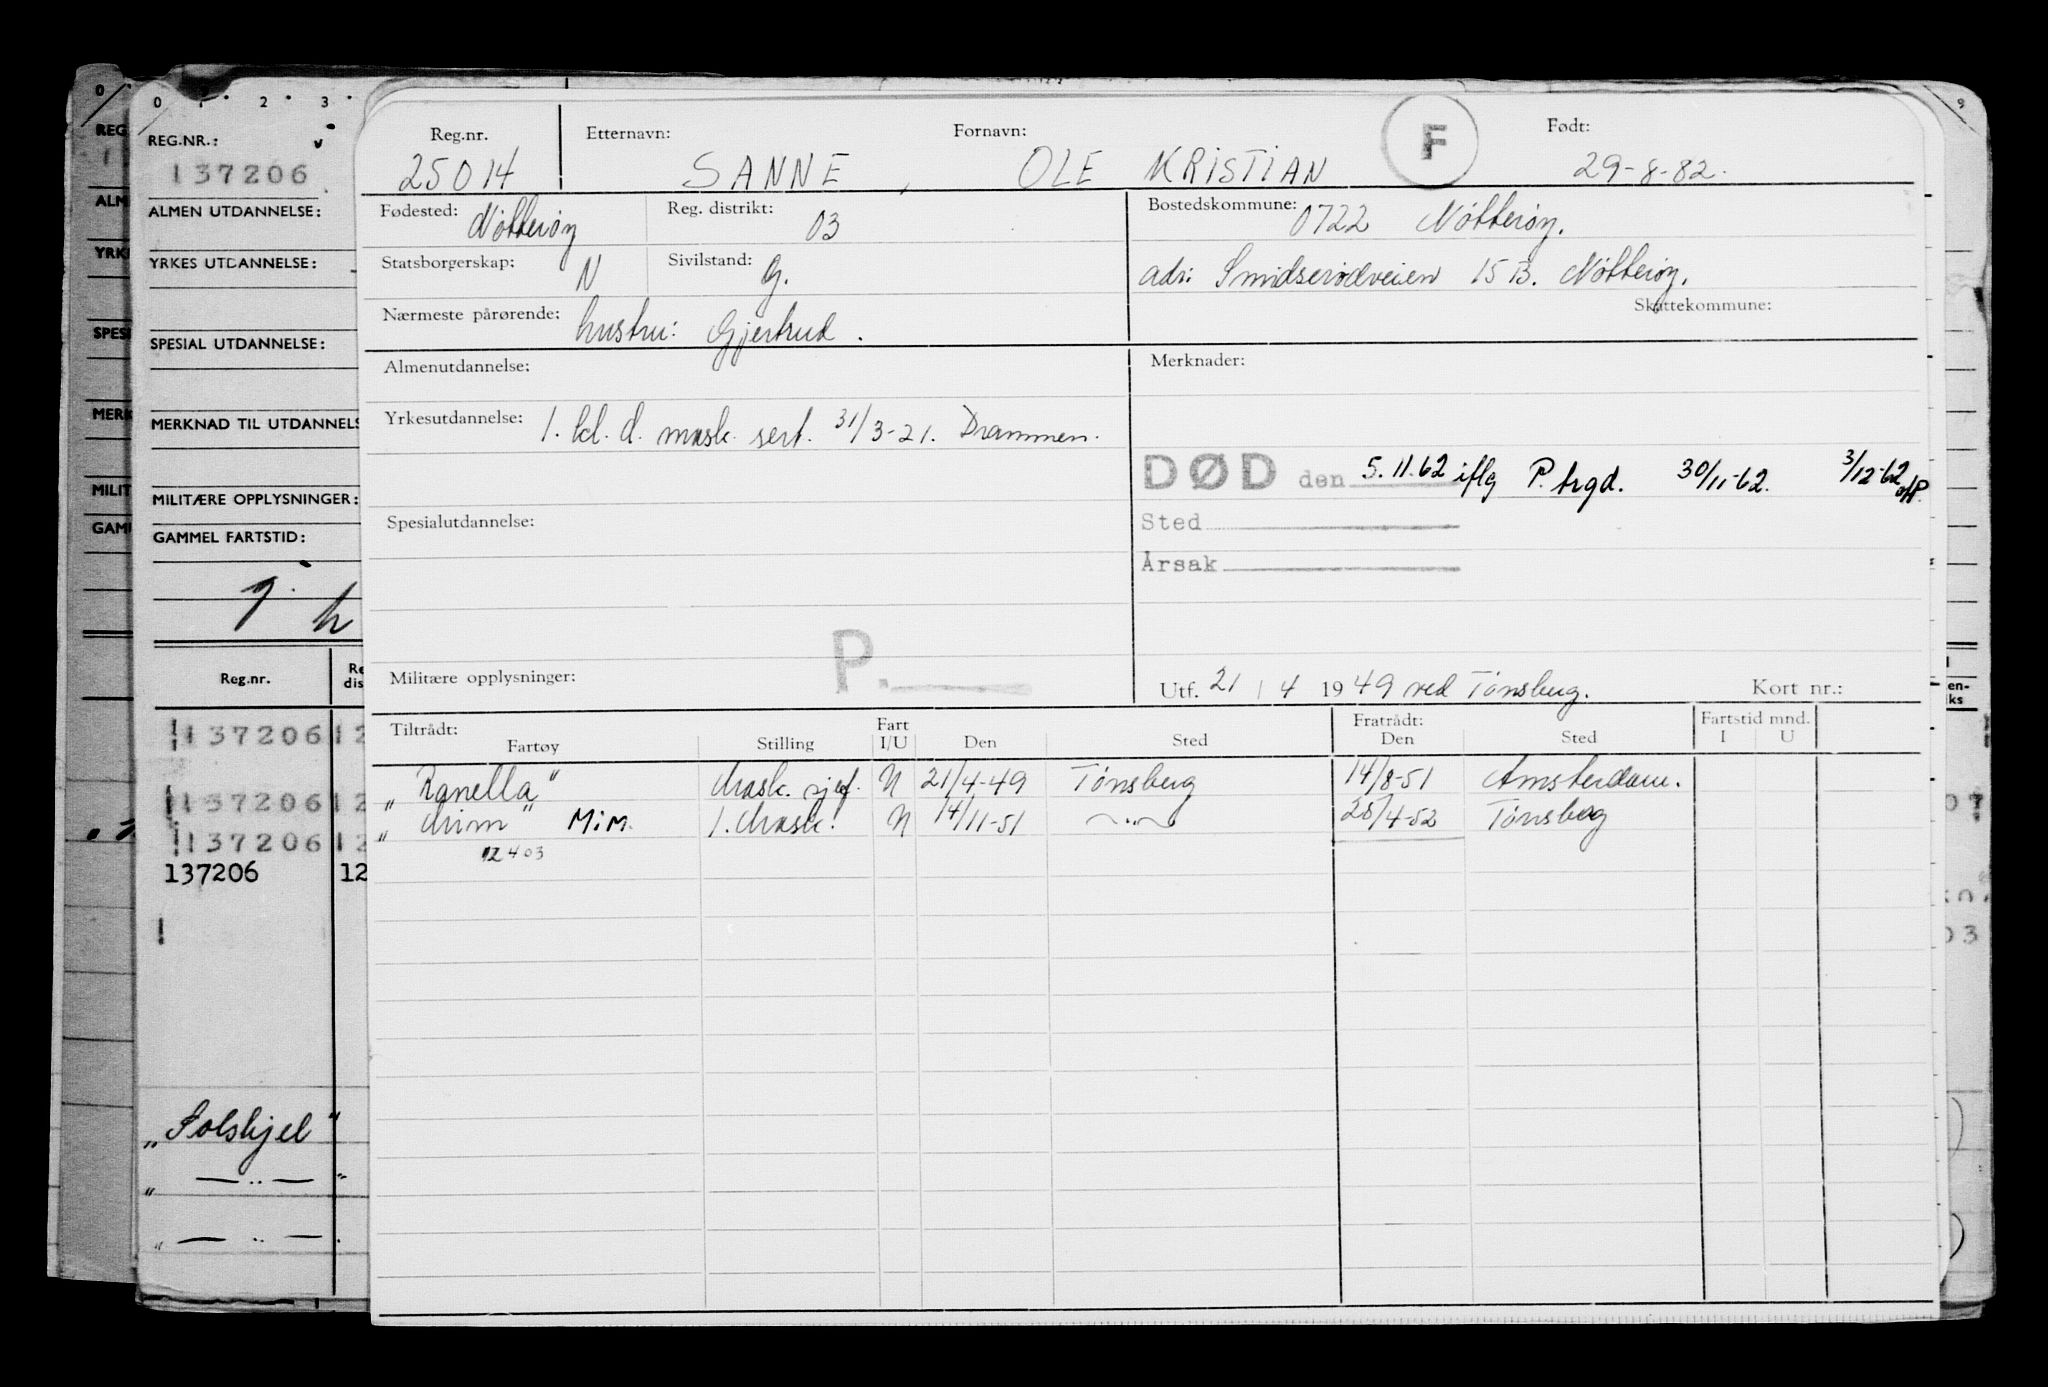 Reg.nr. Etternavn: Fornavn: F Født:
25014 SANNE, OLE KRISTIAN 29-8-82.
Fødested: Nøtterøy Reg. distrikt: 03 Bostedskommune: 0722 Nøtterøy.
Statsborgerskap: N Sivilstand: G. adr: Smidsrødveien 15 B. Nøtterøy.
Skattekommune:
Nærmeste pårørende: hustru: Gjertrud.
Almenutdannelse: Merknader:
Yrkesutdannelse: 1. kl. d. mask. sert. 31/3-21. Drammen.
DØD den 5.11.62 iflg P. trgd. 30/11-62. 3/12-62
Spesialutdannelse: Sted
Årsak
P.
Militære opplysninger: Utf. 21/4 1949 ved Tønsberg. Kort nr.:
Tiltrådt: Fart Fratrådt: Fartstid mnd.
Fartøy Stilling I/U Den Sted Den Sted I U
"Ranella" Mask. sjef. N 21/4-49 Tønsberg 14/8-51 Amsterdam.
"Mim" MiM. 1. Mask. N 14/11-51 —"— 25/4-52 Tønsberg
12403
0 1 2 3
REG.NR.:
137206
ALMEN UTDANNELSE:
YRKES UTDANNELSE:
SPESIAL UTDANNELSE:
MERKNAD TIL UTDANNELS
MILITÆRE OPPLYSNINGER:
GAMMEL FARTSTID:
Reg.nr. Re
dis
137206 12
137206 12
137206 12
137206 12
"Solskjel"
" — .. — "
" — .. — "
0
REG
ALM
YRK
SPES
MERK
MILIT
GAM
9
en-
iks
07
03